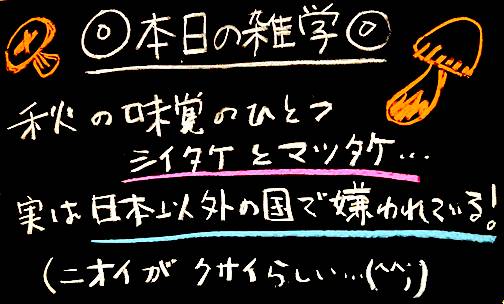 ◎本日の雑学◎
秋の味覚のひとつ
シイタケとマツタケ…
実は日本以外の国で嫌われている!
(ニオイがクサイらしい…(^^;)